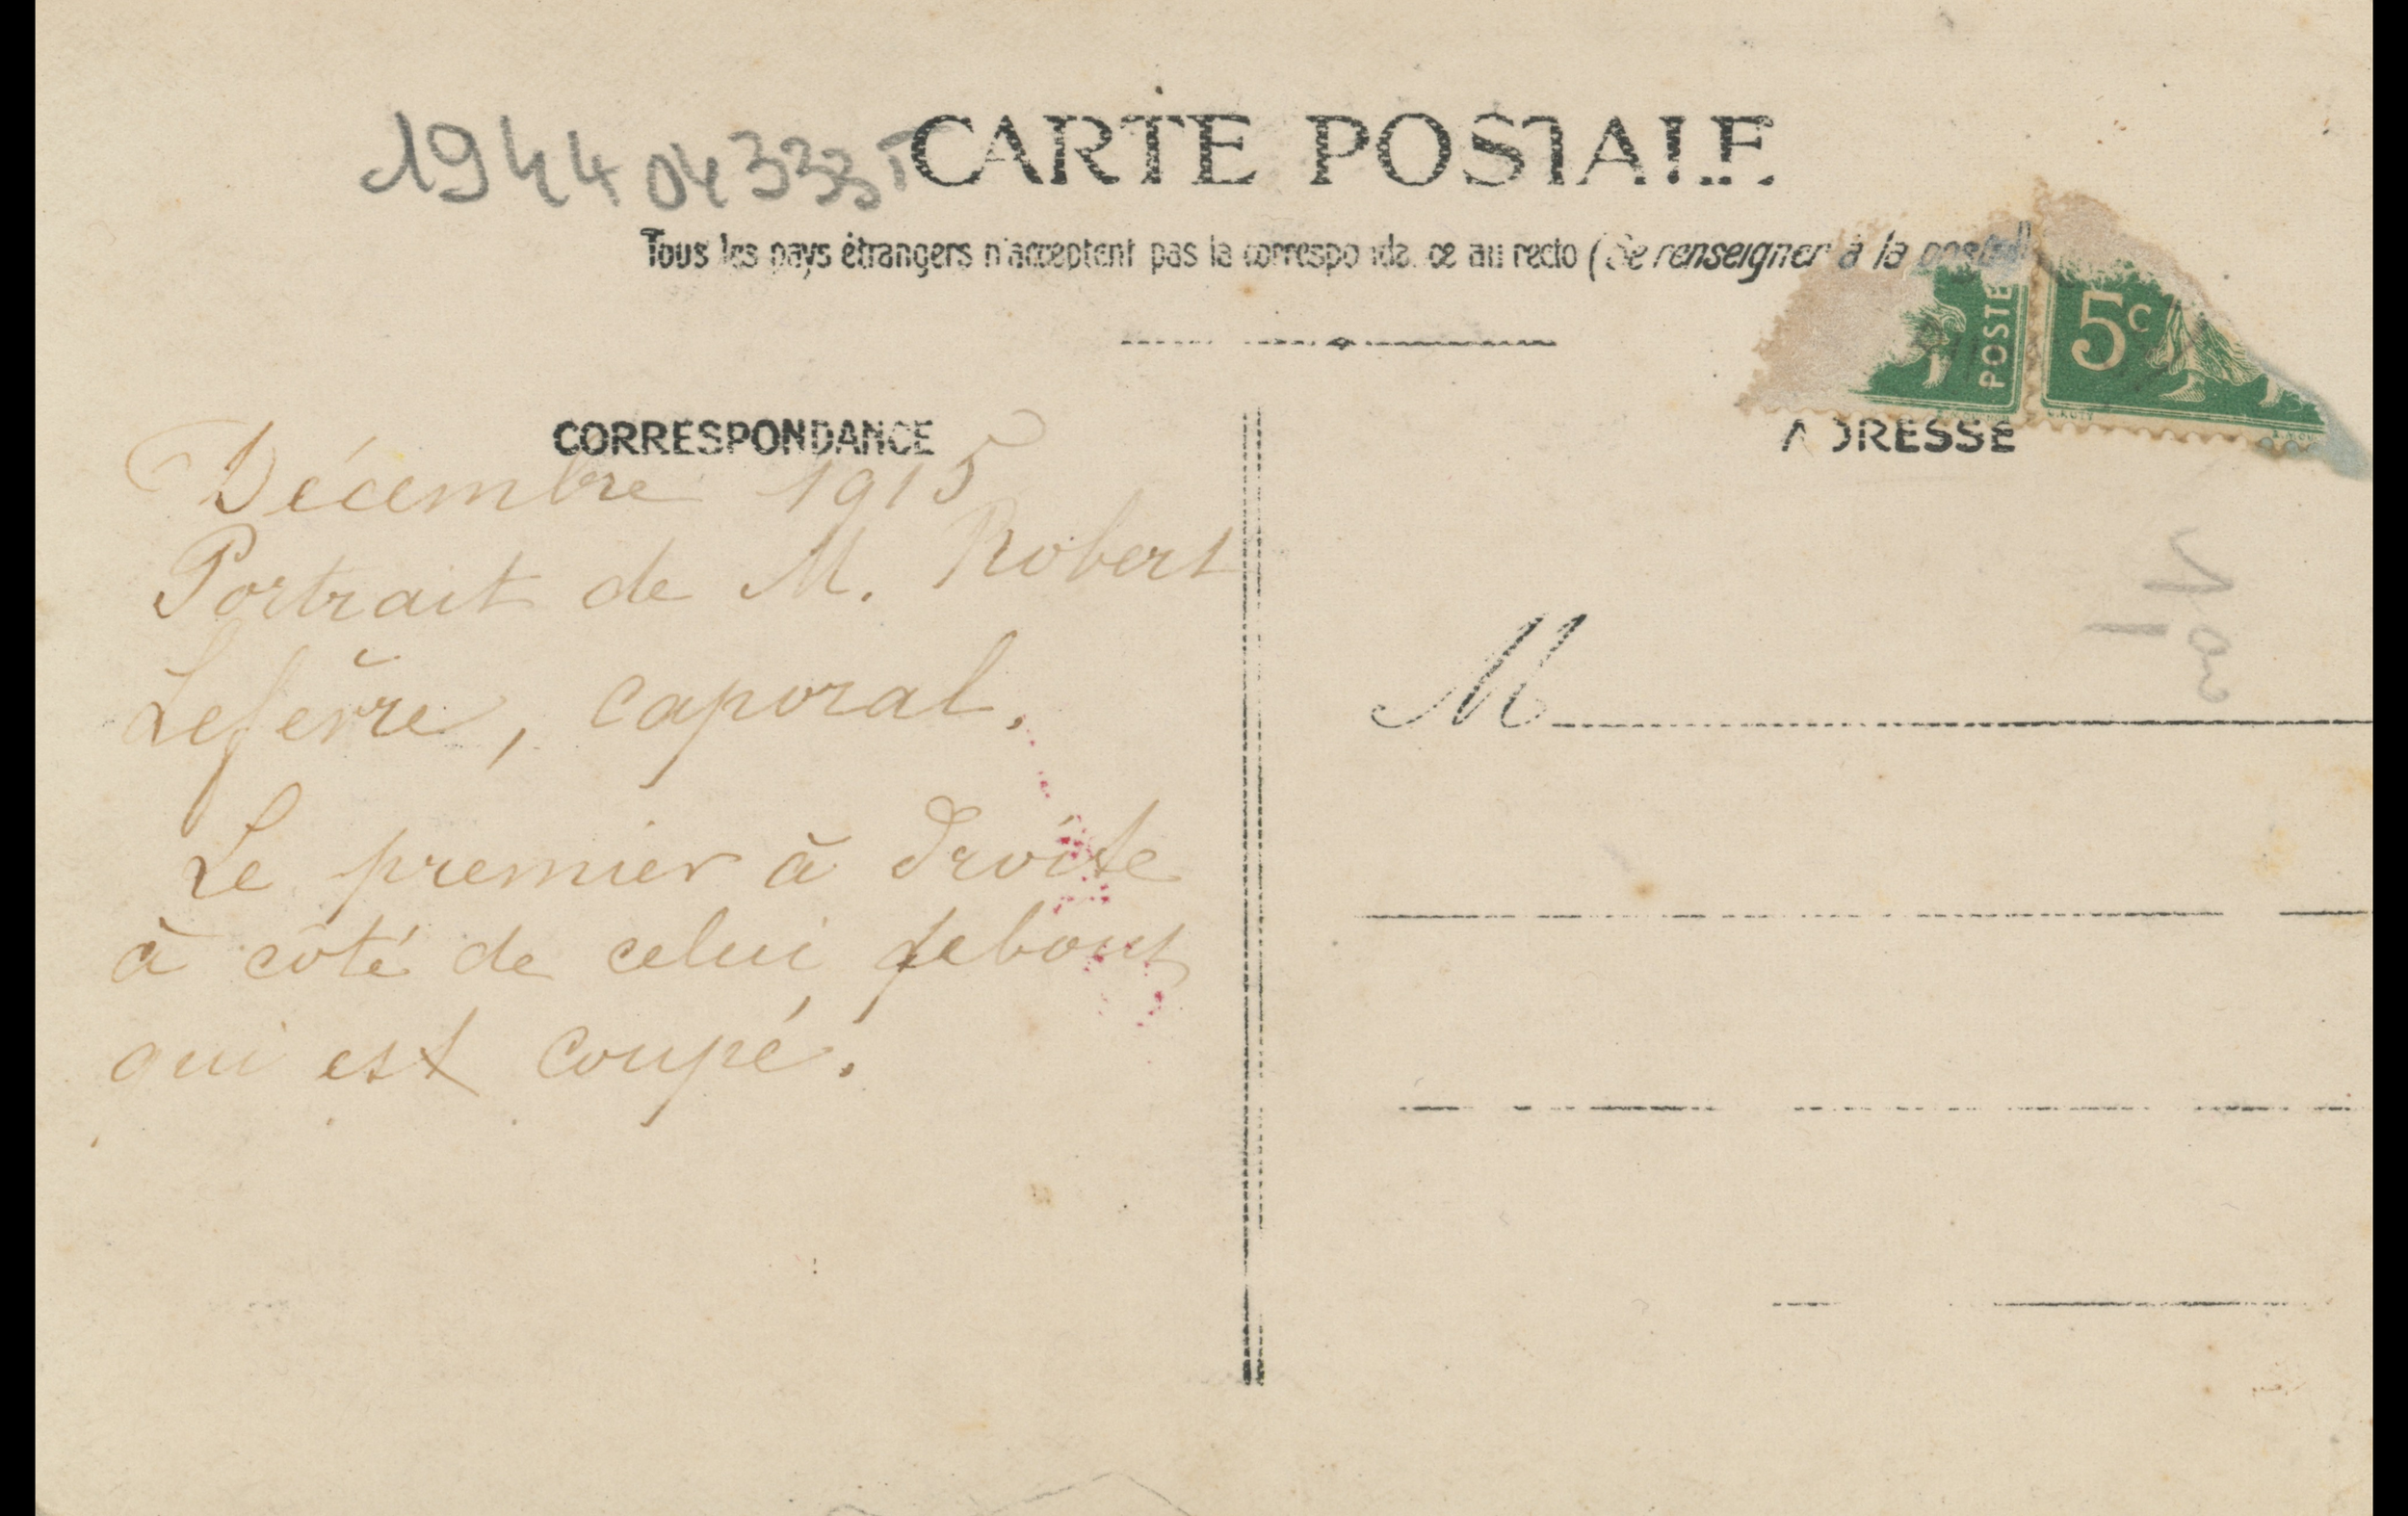 1944 04 333 T
CARTE POSTALE
Tous les pays étrangers n'acceptent pas la correspondance au recto (Se renseigner à la poste)
POSTE
5c
CORRESPONDANCE
ADRESSE
Décembre 1915
Portrait de M. Robert
Lefèvre, caporal.
Le premier à droite
à côté de celui debout
qui est coupé.
M